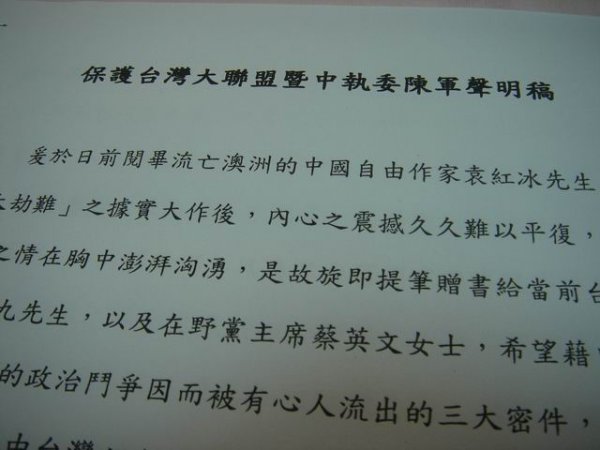 保護台灣大聯盟暨中執委陳軍聲明稿
爰於日前閱畢流亡澳洲的中國自由作家袁紅冰先生
劫難」之據實大作後,內心之震撼久久難以平復,
之情在胸中澎湃洶湧,是故旋即提筆贈書給當前台
九先生,以及在野黨主席蔡英文女士,希望藉
的政治鬥爭因而被有心人流出的三大密件,
中台灣